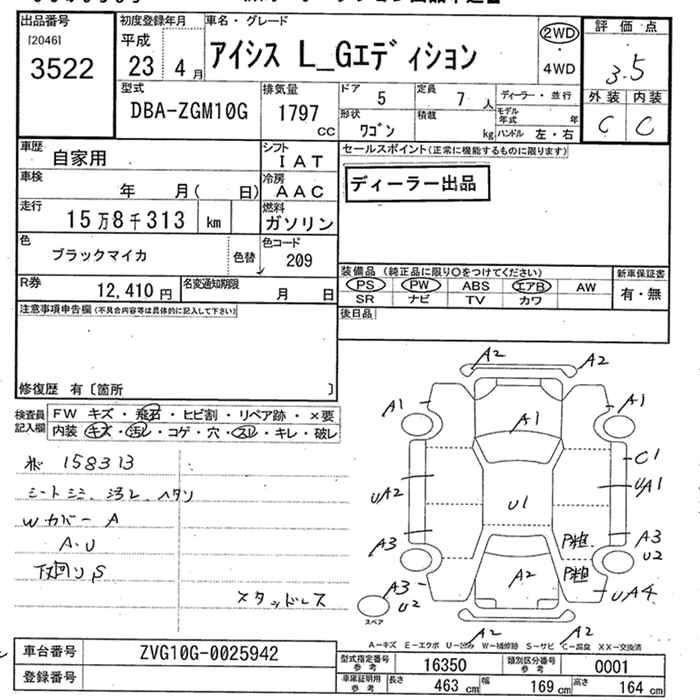 出品番号
[2046]
3522
初度登録年月
平成
23 年 4 月
車名・グレード
アイシス L_Gエディション
2WD
・
4WD
評価点
3.5
外装 内装
C C
型式
DBA-ZGM10G
排気量
1797
cc
ドア 5
定員 7 人
形状 ワゴン
積載 kg
ディーラー・並行
モデル年式 年
ハンドル 左・右
車歴
自家用
シフト
IAT
車検
年 月( 日)
冷房
AAC
走行
15万8千313 km
燃料
ガソリン
色
ブラックマイカ
色替
色コード
209
R券
12,410 円
名変通知期限
月 日
セールスポイント(正常に機能するものに限ります)
ディーラー出品
装備品 (純正品に限り○をつけてください)
PS PW ABS エアB AW
SR ナビ TV カワ
新車保証書
有・無
後日品
注意事項申告欄(不具合内容等は具体的に記入して下さい)
修復歴 有〔箇所 〕
検査員
記入欄
FW キズ・飛石・ヒビ割・リペア跡・×要
内装 キズ・汚レ・コゲ・穴・スレ・キレ・破レ
158313
シートシミ、汚レ、ヘタリ
Wカバー A
A・U
下回りS
スタッドレス
A2 A2
A1 A1 A1
C1
UA2 U1 UA1
A3 P粗 A3
U2
A3 A2 P粗 UA4
U2
スペア
A2 A2
A-キズ E-エクボ U-凹み W-補修跡 S-サビ C-腐食 XX-交換済
車台番号
ZVG10G-0025942
登録番号
型式指定番号
参考
16350
類別区分番号
参考
0001
車庫証明用
参考
長さ 463 cm
幅 169 cm
高さ 164 cm